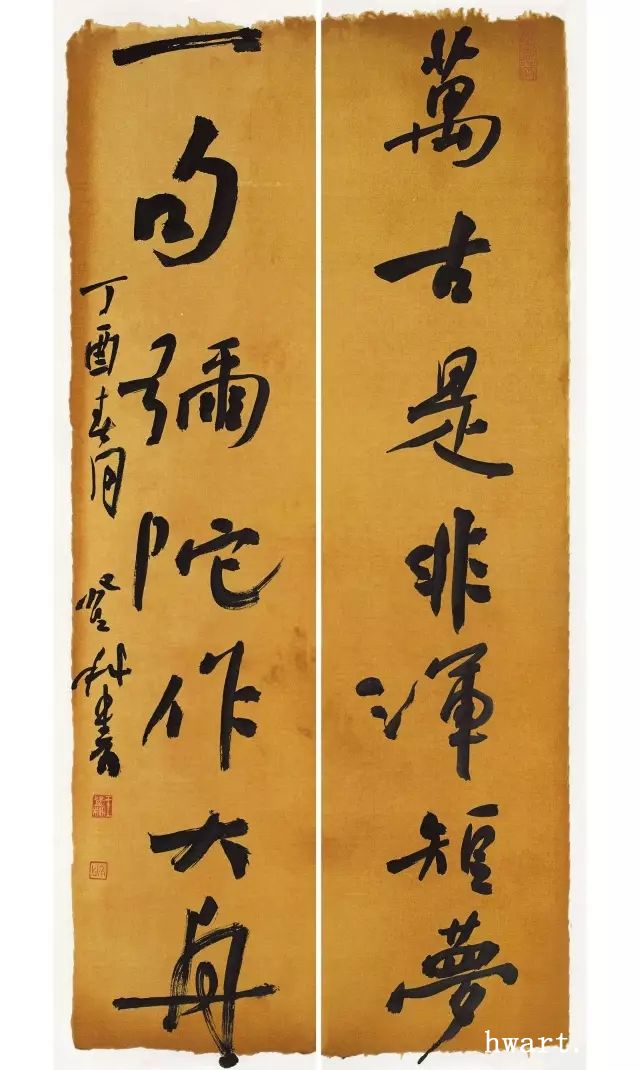 萬古是非渾短夢
一句彌陀作大舟
丁酉春月
登科書
hwart.